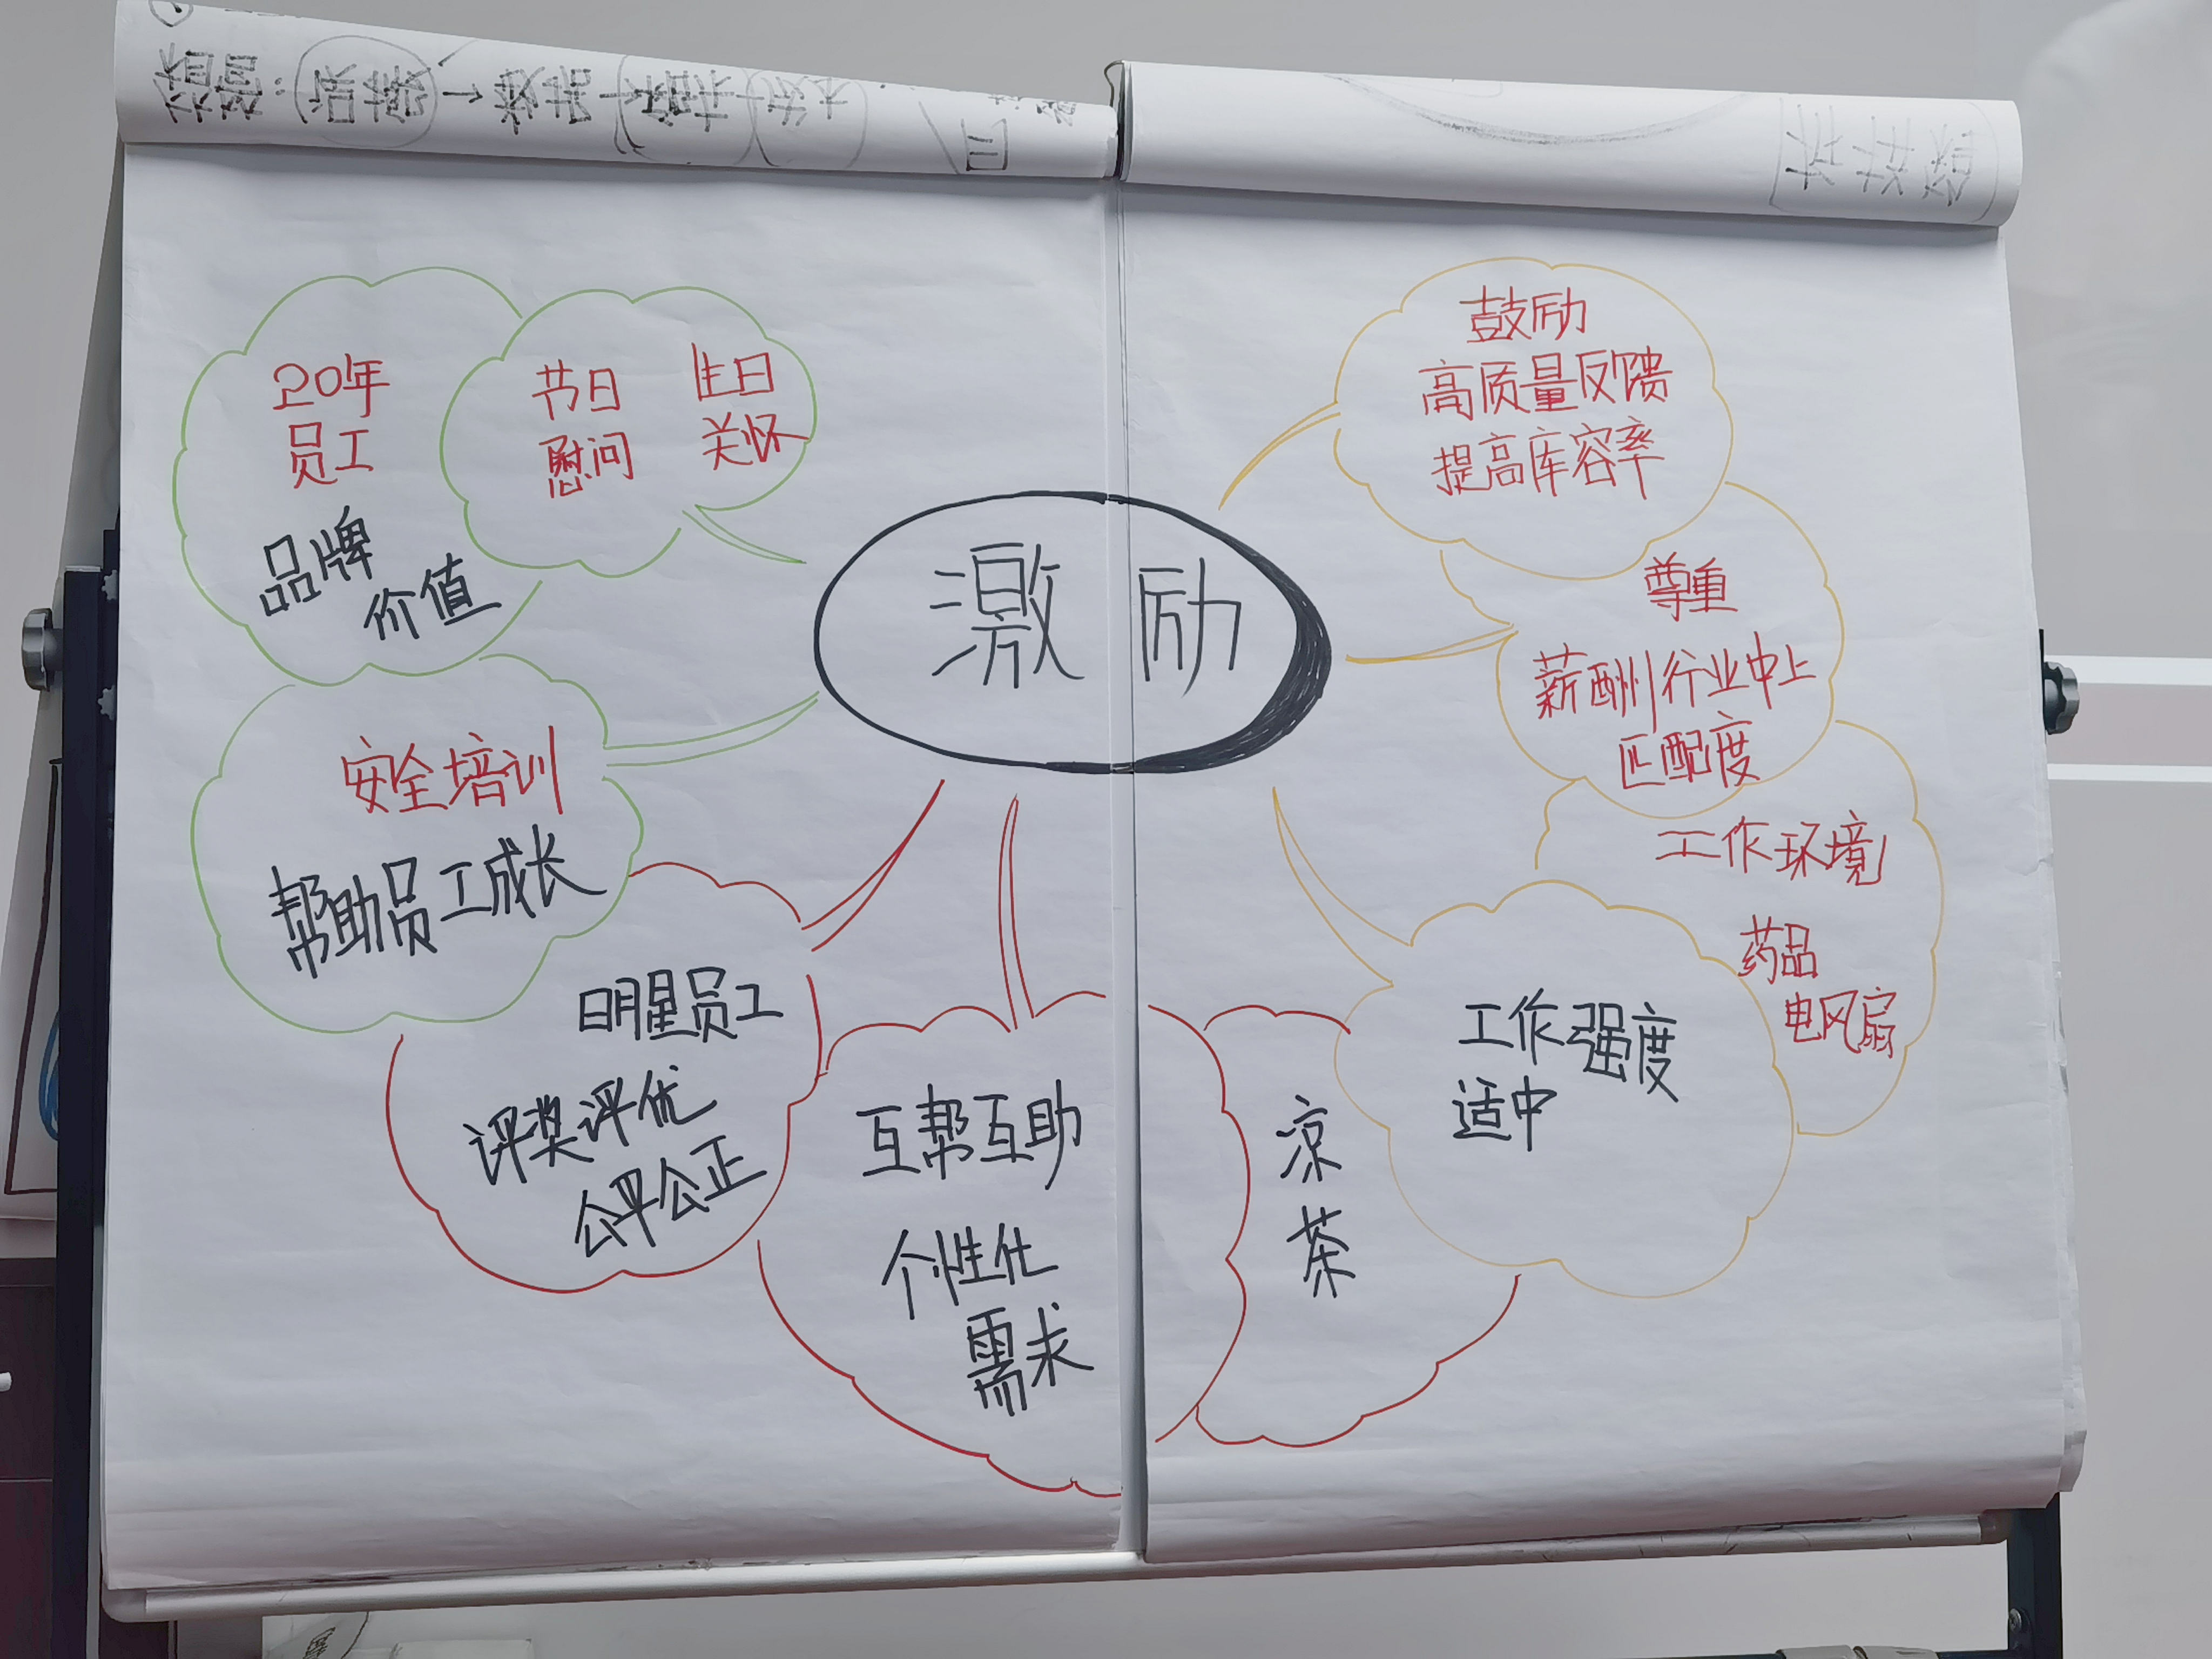 激励
20年
员工
品牌
价值
节日
慰问
生日
关怀
安全培训
帮助员工成长
明星员工
评奖评优
公平公正
互帮互助
个性化
需求
凉
茶
工作强度
适中
工作环境
药品
电风扇
尊重
薪酬|行业中上
匹配度
鼓励
高质量反馈
提高库容率